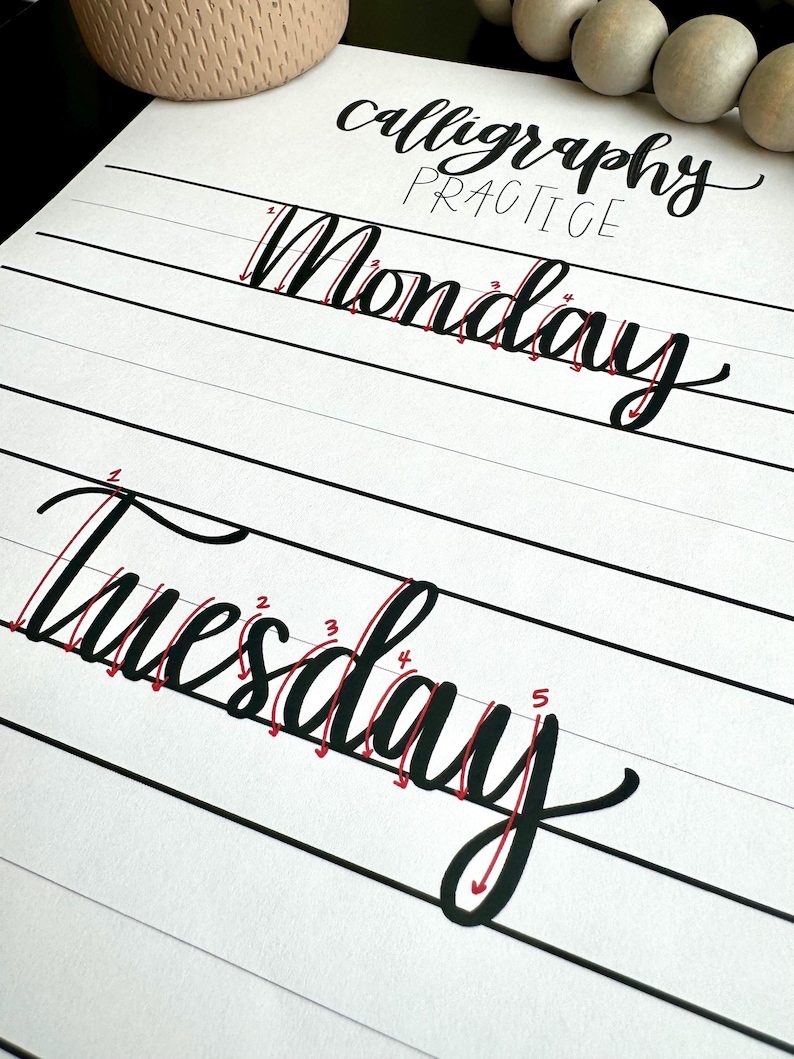 calligraphy
PRACTICE
1 2 3 4
Monday
1 2 3 4 5
Tuesday